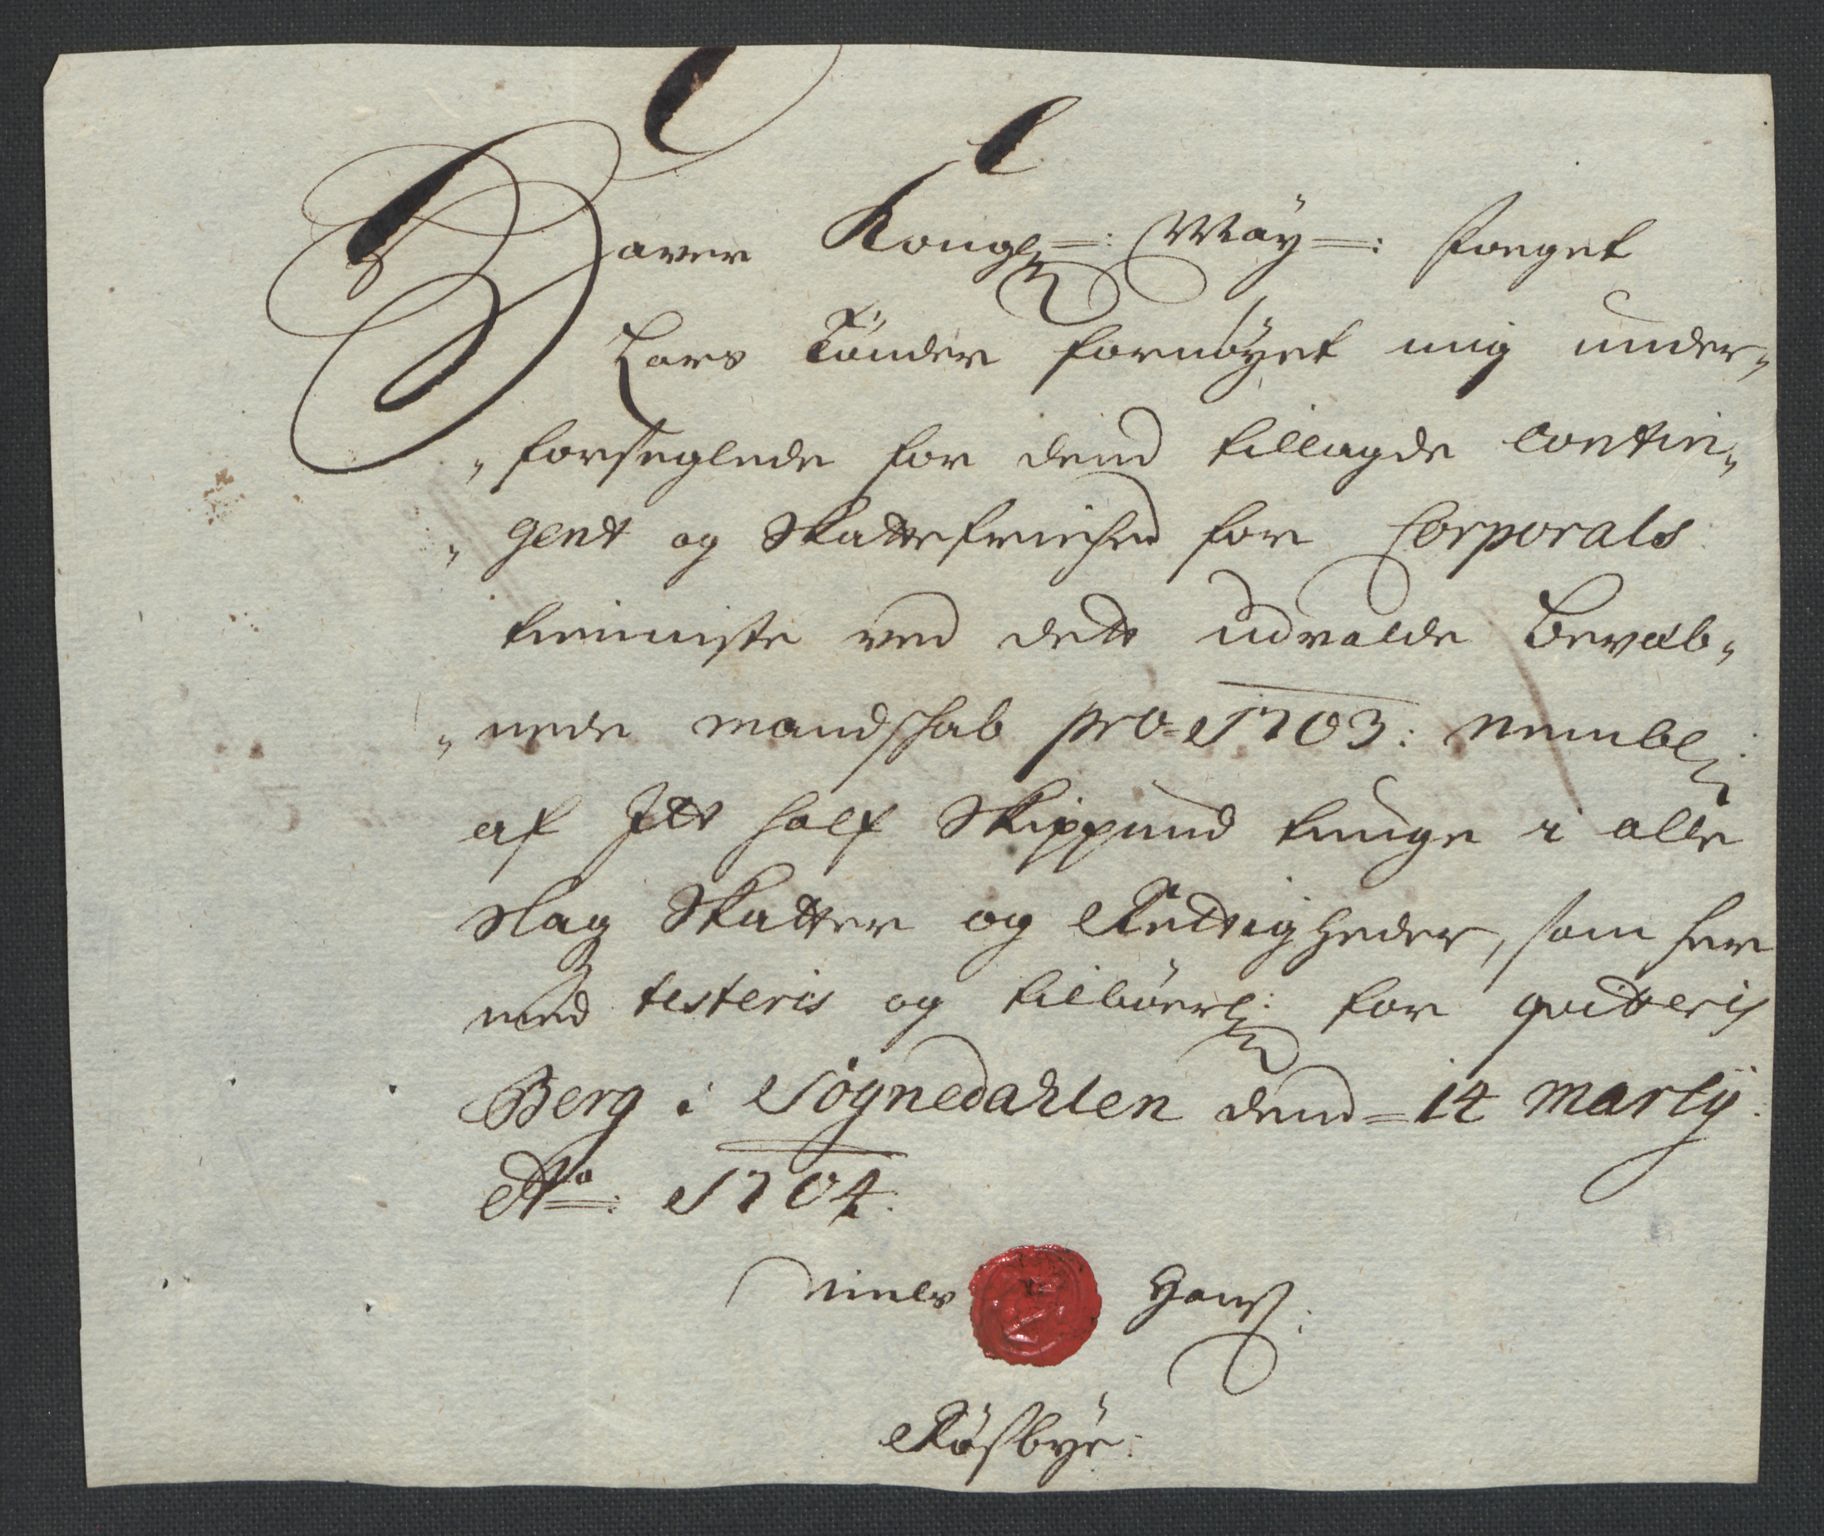 Haver Kongl: May: Foeget
Lars Tønder fornøyet mig under-
forseglede for dend tillagde Contin-
gent og Skattefriehed for Corporals
tienniste ved dett udvalde Bevæb-
nede mandschab pro 1703: Nembl:
af Itt half Skippund tunge i alle
Slag Skatter og Rettigheder, som her
med testeris og tilbøerl: for qvitteris
Berg i Søgnedahlen dend 14 Marty
Ao: 1704.
Niels Hanß:
Røsbye: